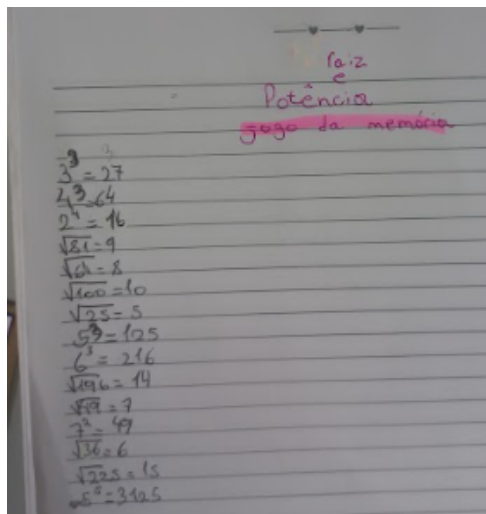 raiz
e
Potência
jogo da memória
3³ = 27
4³ = 64
2⁴ = 16
√81 = 9
√64 = 8
√100 = 10
√25 = 5
5³ = 125
6³ = 216
√196 = 14
√49 = 7
7² = 49
√36 = 6
√225 = 15
5⁵ = 3125